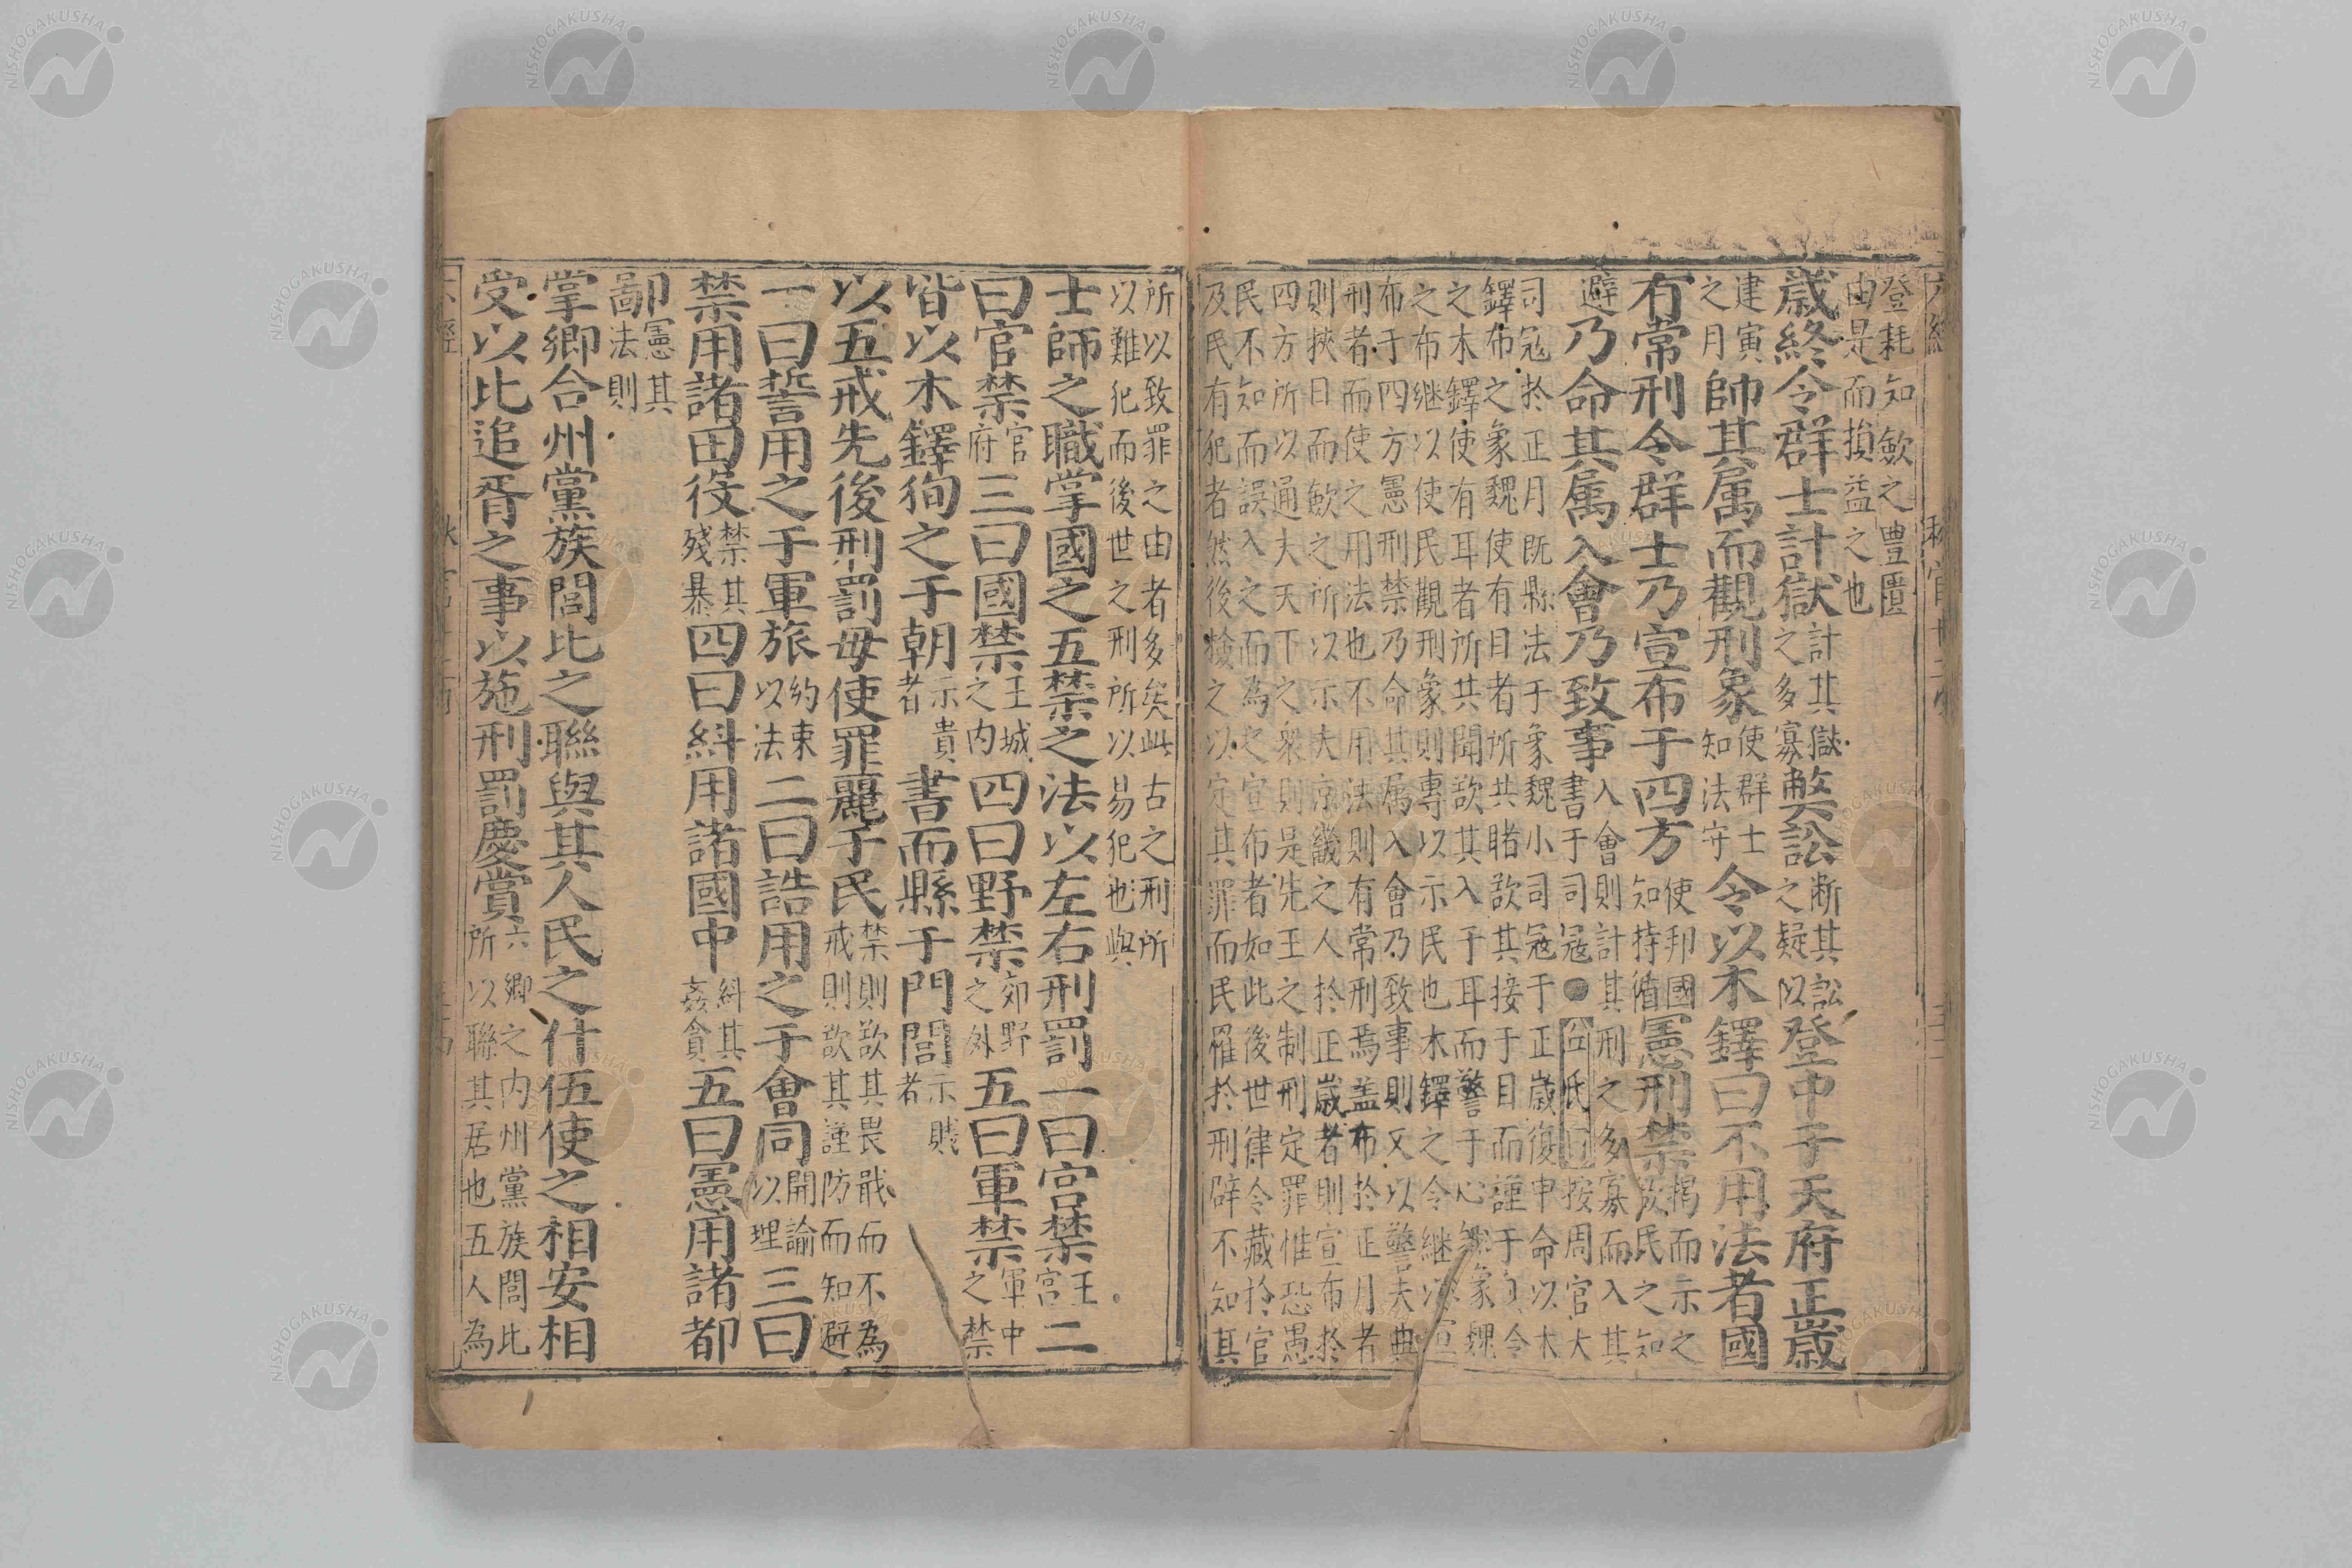 登耗知歛之豊匱
由是而損益之也
歲終令群士計獄計其獄之多寡獘訟断其訟之疑以登中于天府正歲
建寅之月帥其属而觀刑象使群士知法守令以木鐸曰不用法者國
有常刑令群士乃宣布于四方使邦國知持循憲刑禁掲而示之故民之知
避乃命其属入會乃致事入會則計其刑之多寡而入其書于司冦●丘氏曰按周官大
司冦於正月既縣法于象魏小司冦于正歲復申命以木
鐸布之象魏使有目者所共睹欲其接于目而謹于令
之木鐸使有耳者所共聞欲其入于耳而警于心象魏
之布継以使民觀刑象則專以示民也木鐸之令継以宣
布于四方憲刑禁乃命其属入會乃致事則又以警夫典
刑者而使之用法也不用法則有常刑焉盖布於正月者
則挾日而歛之所以示大京畿之人於正歲者則宣布於
四方所以通大天下之衆則是先王之制刑定罪惟恐愚
民不知而誤入之而為之宣布者如此後世律令藏於官
及民有犯者然後撿之以定其罪而民罹於刑辟不知其
所以致罪之由者多矣此古之刑所
以難犯而後世之刑所以易犯也與
士師之職掌國之五禁之法以左右刑罰一曰宮禁王宮二
曰官禁官府三曰國禁王城之内四曰野禁郊野之外五曰軍禁軍中之禁
皆以木鐸徇之于朝示貴者書而縣于門閭示賎者
以五戒先後刑罰毋使罪麗于民禁則欲其畏戢而不為戒則欲其謹防而知避
一曰誓用之于軍旅約束以法二曰誥用之于會同開諭以理三曰
禁用諸田役禁其殘暴四曰糾用諸國中糾其姦貪五曰憲用諸都
鄙憲其法則
掌鄉合州黨族閭比之聯與其人民之什伍使之相安相
受以比追胥之事以施刑罰慶賞六鄉之内州黨族閭比所以聯其居也五人為